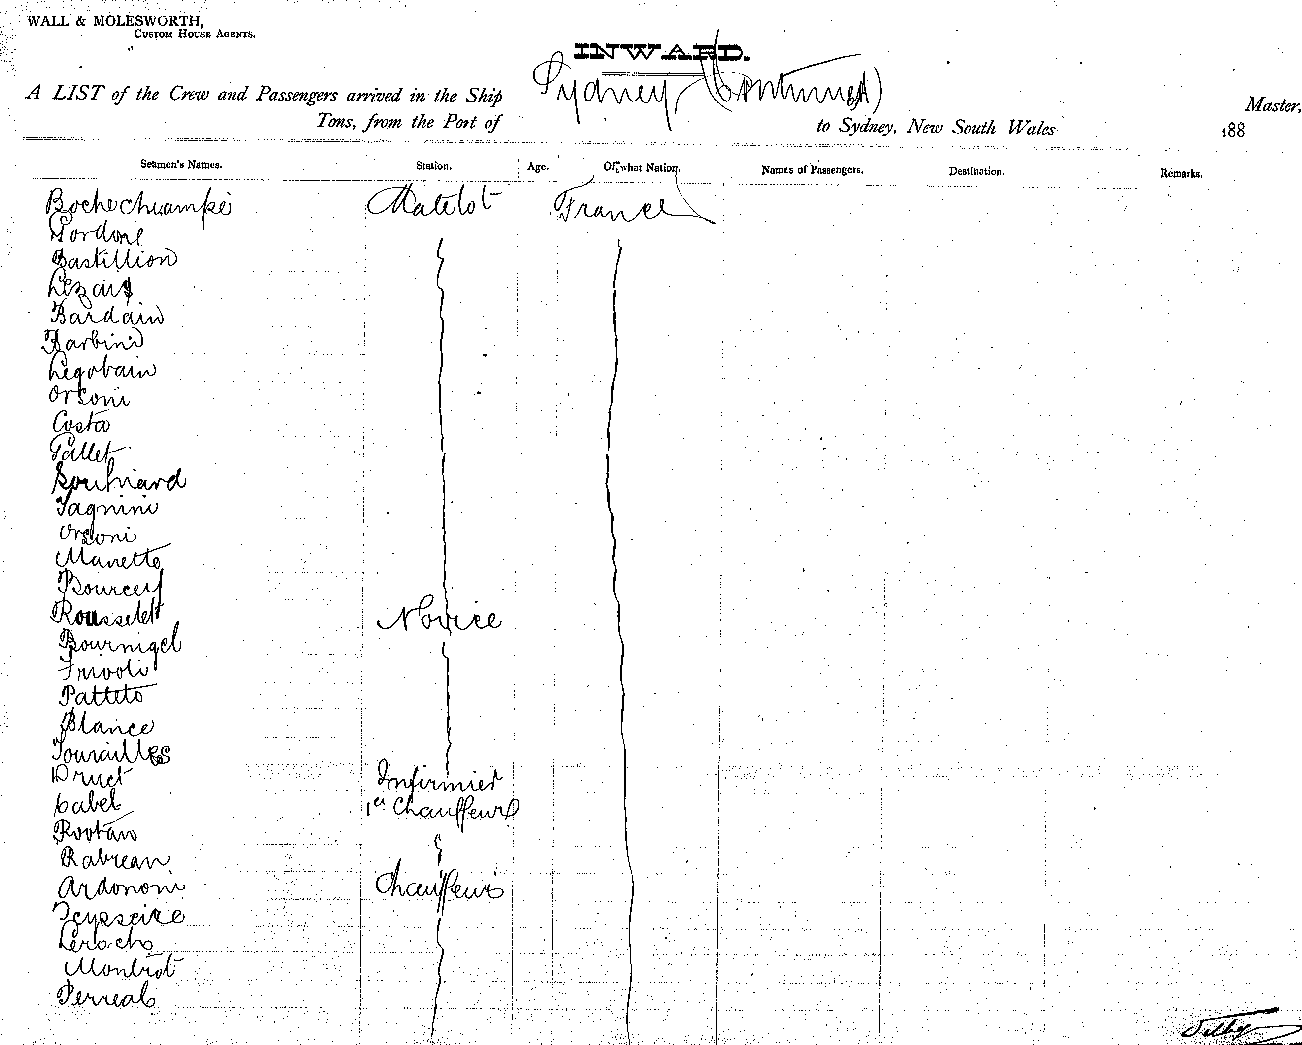 WALL & MOLESWORTH,
CUSTOM HOUSE AGENTS.
INWARD.
A LIST of the Crew and Passengers arrived in the Ship Sydney (Continued) Master,
Tons, from the Port of to Sydney, New South Wales 188
Seamen's Names. Station. Age. Of what Nation. Names of Passengers. Destination. Remarks.
Matelot France
Gordone
Bastillion
Lezars
Bardain
Barbini
Legobain
Orsoni
Costa
Pallet
Tagnini
Orsoni
Manette
Rousselet Novice
Bournigel
Frivoli
Pattito
Blance
Tourailles
Druet Infirmier
Cabel 1er Chauffeurs
Rootan
Rabrean
Ardononi Chauffeurs
Teysseire
Montrot
Perreal